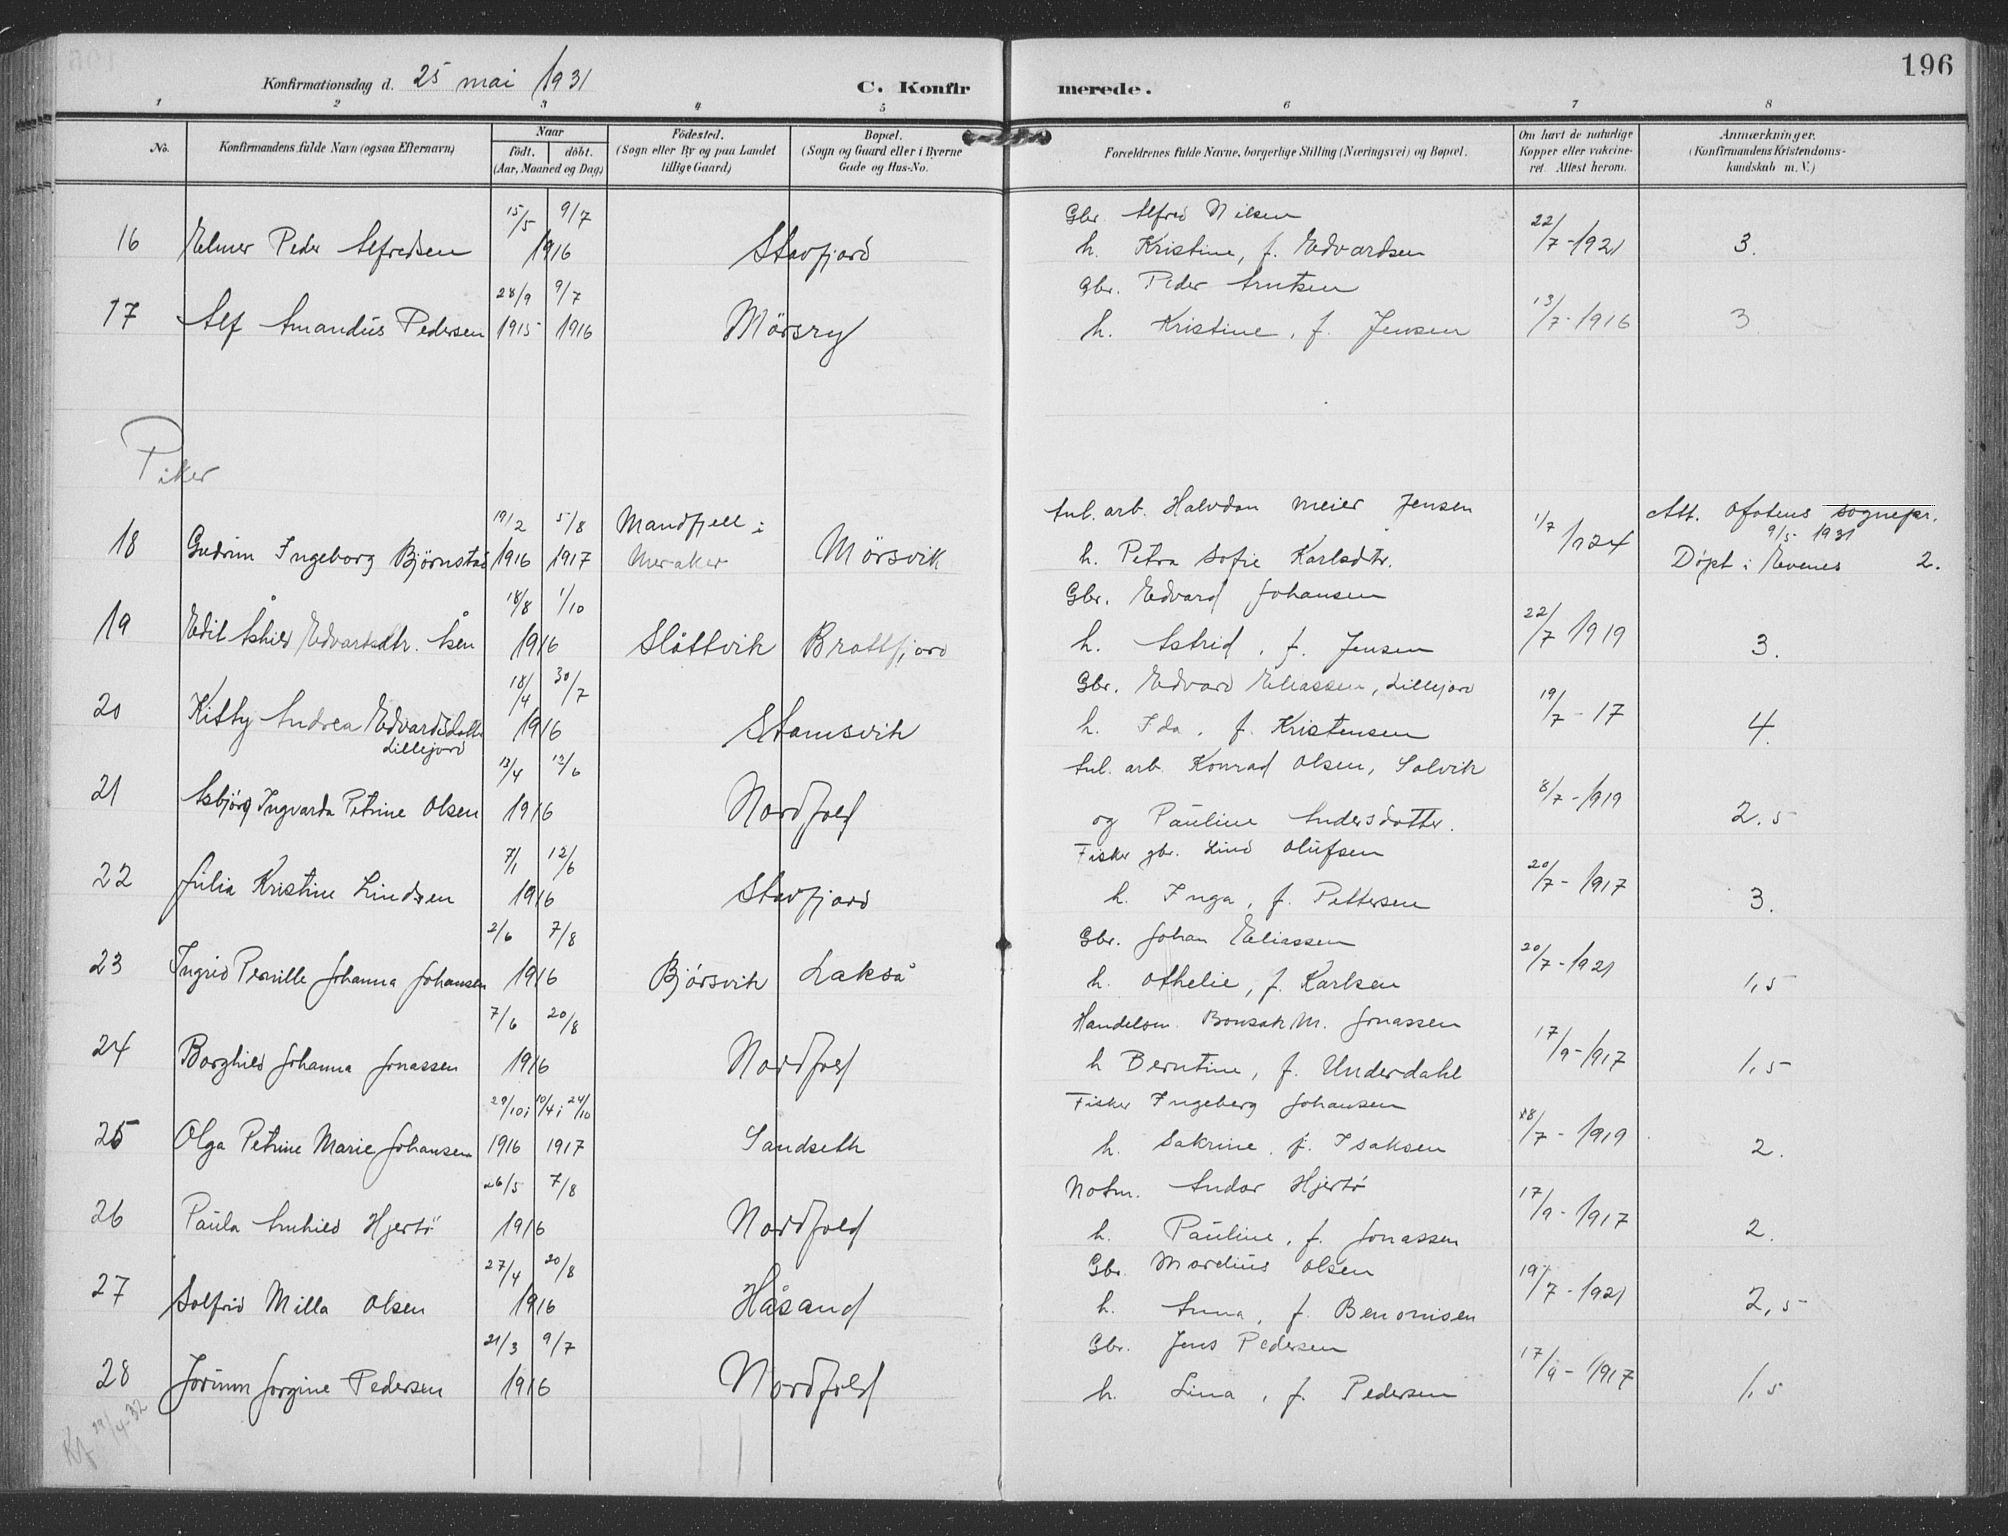 196
Konfirmationsdag d. 25 mai 1931 C. Konfirmerede.
1 2 3 4 5 6 7 8
No. Konfirmandens fulde Navn (ogsaa Efternavn) Naar født. døbt. (Aar, Maaned og Dag) Fødested. (Sogn eller By og paa Landet tillige Gaard) Bopæl. (Sogn og Gaard eller i Byerne Gade og Hus-No. Forældrenes fulde Navne, borgerlige Stilling (Næringsvei) og Bopæl. Om havt de naturlige Kopper eller vaccineret. Attest herom. Anmærkninger. (Konfirmandens Kristendomskundskab m. V.)
15/5 9/7 Gbr. Alfred Nilsen 22/7-1921
16 Elmer Peder Alfredsen 1916 Stavfjord h. Kristine, f. Edvardsen 3.
28/9 9/7 Gbr. Peder Arntsen 13/7-1916
17 Alf Amandus Pedersen 1915 1916 Mørsry h. Kristine, f. Jensen 3
Piker
19/2 5/8 Mandfjell i Anl. arb. Halvdan Meier Jensen 1/7 1924 Att. Ofotens sognepr. 9/5 1931
18 Gudrun Ingeborg Bjørnstad 1916 1917 Meraker Mørsvik h. Petra Sofie Karlsdtr. Døpt i Evenes 2.
18/8 1/10 Gbr. Edvard Johansen 22/7 1919
19 Edit Åshild Edvardsdtr. Åsen 1916 Slåttvik Brattfjord h. Astrid, f. Jensen 3.
18/4 30/7 Gbr. Edvard Eliassen, Lillejord 19/7-17
20 Kitty Andrea Edvardsdatter Lillejord 1916 Stamsvik h. Ida, f. Kristensen 4.
13/4 12/6 Anl. arb. Konrad Olsen, Solvik 8/7-1919
21 Asbjørg Ingvarda Petrine Olsen 1916 Nordfold og Pauline Andersdatter. 2.5
7/1 12/6 Fisker gbr. Lind Olufsen 20/7-1917
22 Julia Kristine Lindsen 1916 Stavfjord h. Inga, f. Pettersen 3.
2/6 7/8 Gbr. Johan Eliassen 20/7-1921
23 Ingrid Pernille Johanna Johansen 1916 Bjørsvik Lakså h. Othelie, f. Karlsen 1,5
7/6 20/8 Handelsm. Bonsak M. Jonassen 17/9-1917
24 Borghild Johanna Jonassen 1916 Nordfold h Berntine, f. Underdahl 1,5
29/10; 10/4; 24/10 Fisker Ingeberg Johansen 18/7-1919
25 Olga Petrine Marie Johansen 1916 1917 Sandseth h. Sakrine, f. Isaksen 2.
26/5 7/8 Notm. Andor Hjertø 17/9-1917
26 Paula Arnhild Hjertø 1916 Nordfold h. Pauline, f. Jonassen 2.
27/4 20/8 Gbr. Mardius Olsen 19/7-1921
27 Solfrid Milla Olsen 1916 Håsand h. Anna, f. Benonisen 2,5
21/3 9/7 Gbr. Jens Pedersen 17/9-1917
28 Jorunn Jorgine Pedersen 1916 Nordfold h. Lina, f. Pedersen 1,5
Kf 29/4-32